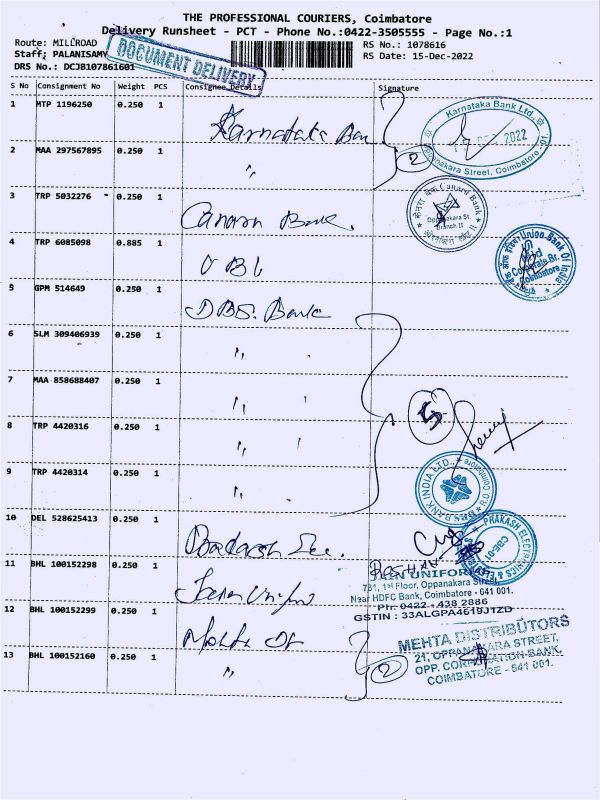 THE PROFESSIONAL COURIERS, Coimbatore
Delivery Runsheet - PCT - Phone No.:0422-3505555 - Page No.:1
Route: MILLROAD
RS No.: 1078616
Staff: PALANISAMY
RS Date: 15-Dec-2022
DRS No.: DCJB107861601
DOCUMENT DELIVERY
S No Consignment No Weight PCS Consignee Details Signature
1 MTP 1196250 0.250 1 Karnataka Ban
Karnataka Bank Ltd.
2022
Oppanakara Street, Coimbatore
2 MAA 297567895 0.250 1 "
2
3 TRP 5032276 0.250 1 Canara Bank.
केनरा बैंक Canara Bank
Oppanakara St.
Branch II
4 TRP 6085098 0.885 1 UBI
Union Bank Of India
Corporate Br.
Coimbatore
5 GPM 514649 0.250 1 DBS. Bank
6 SLM 309406939 0.250 1 "
7 MAA 858688407 0.250 1 "
8 TRP 4420316 0.250 1 "
5
9 TRP 4420314 0.250 1 "
DBS BANK INDIA LTD.
Coimbatore
10 DEL 528625413 0.250 1
PRAKASH ELECTRONICS
CBE-01
11 BHL 100152298 0.250 1 Jain Uniform
JAIN UNIFORM
781, 1st Floor, Oppanakara Street,
Near HDFC Bank, Coimbatore - 641 001.
Ph: 0422 - 438 2886
GSTIN : 33ALGPA4619J1ZD
12 BHL 100152299 0.250 1 Mehta Di
MEHTA DISTRIBUTORS
21, OPPANAKARA STREET,
OPP. CORPORATION BANK,
COIMBATORE - 641 001.
13 BHL 100152160 0.250 1 "
2